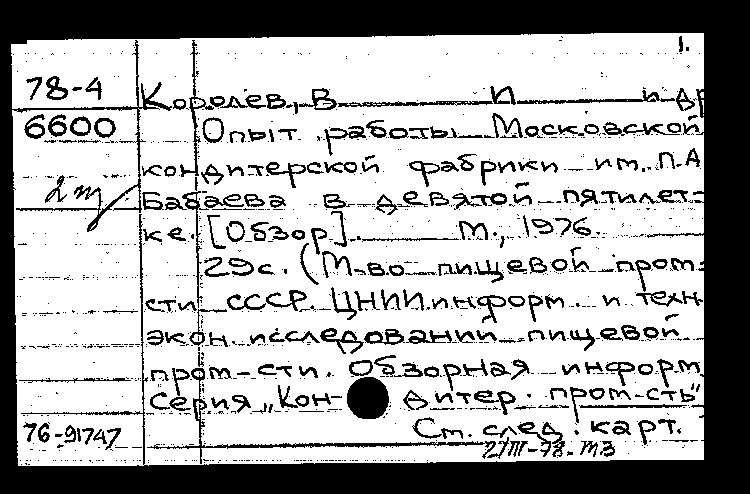 1.
78-4
Королев, В И и др
6600
Опыт работы Московской
кондитерской фабрики им. П.А
2 т
Бабаева в девятой пятилет-
ке. [Обзор]. М., 1976.
29с. (М-во пищевой пром-
сти СССР. ЦНИИ информ. и техн-
экон. исследований пищевой
пром-сти. Обзорная информ
Серия „Кон- дитер. пром-сть"
76-91747
См. след. карт.
2/III-78-